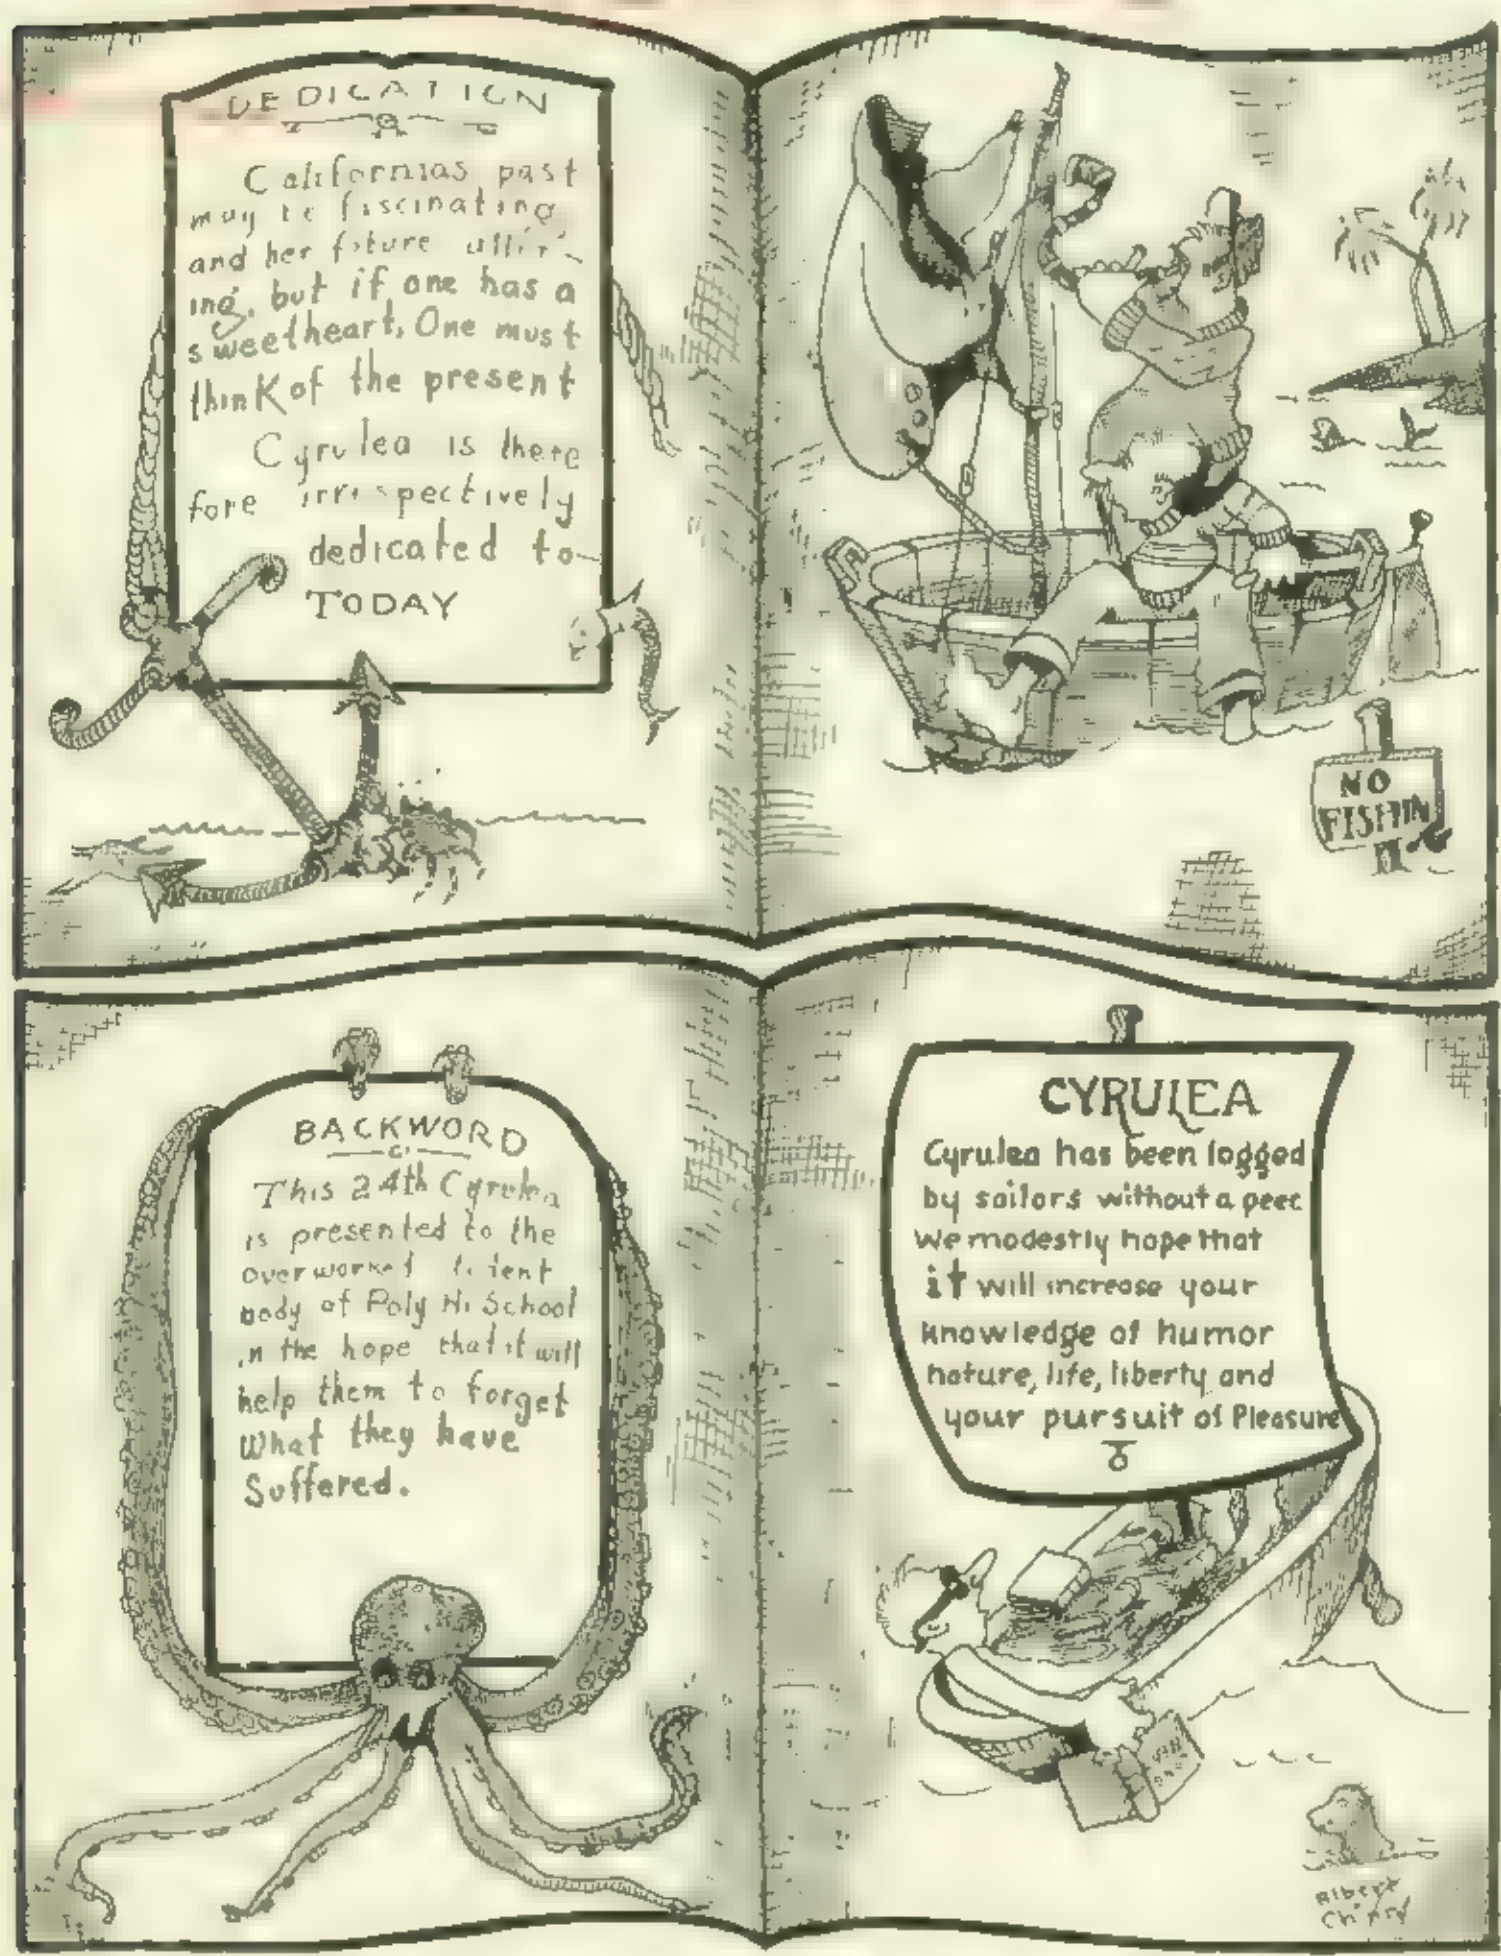 DEDICATION
Californias past
may be fascinating
and her future
ing, but if one has a
sweetheart, One must
think of the present
Cyrulea is there
fore irrespectively
dedicated to
TODAY
NO
FISHIN
BACKWORD
This 24th Cyrulea
is presented to the
overworked
body of Poly Hi School
in the hope that it will
help them to forget
What they have
Suffered.
CYRULEA
Cyrulea has been logged
by sailors without a peer
We modestly hope that
it will increase your
knowledge of humor
nature, life, liberty and
your pursuit of Pleasure
Albert